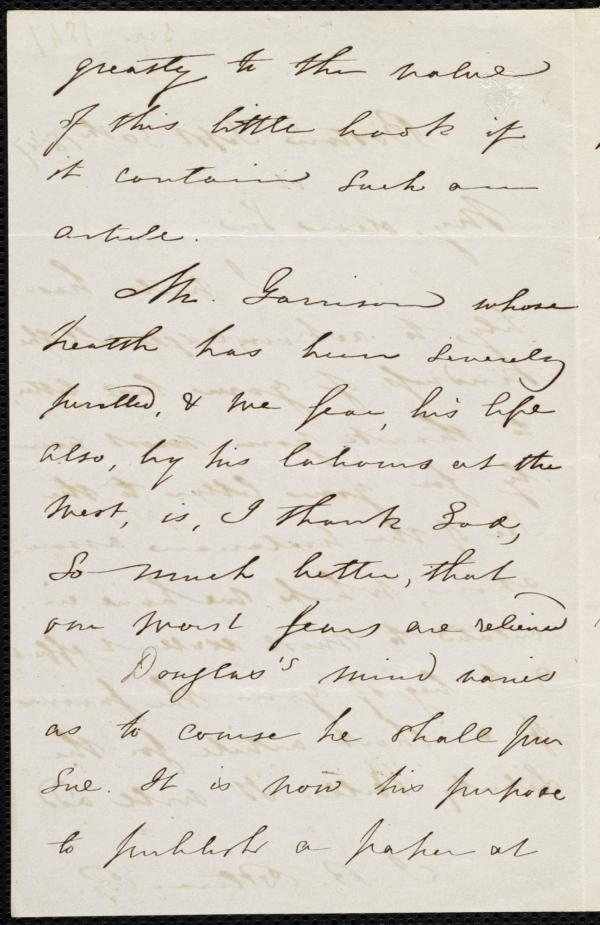 greatly to the value
of this little book if
it contain such an
article.
Mr. Garrison whose
health has been severely
perilled, & we fear, his life
also, by his labours at the
West, is, I thank God,
so much better, that
our worst fears are relieved
Douglas's mind varies
as to course he shall pur
sue. It is now his purpose
to publish a paper at